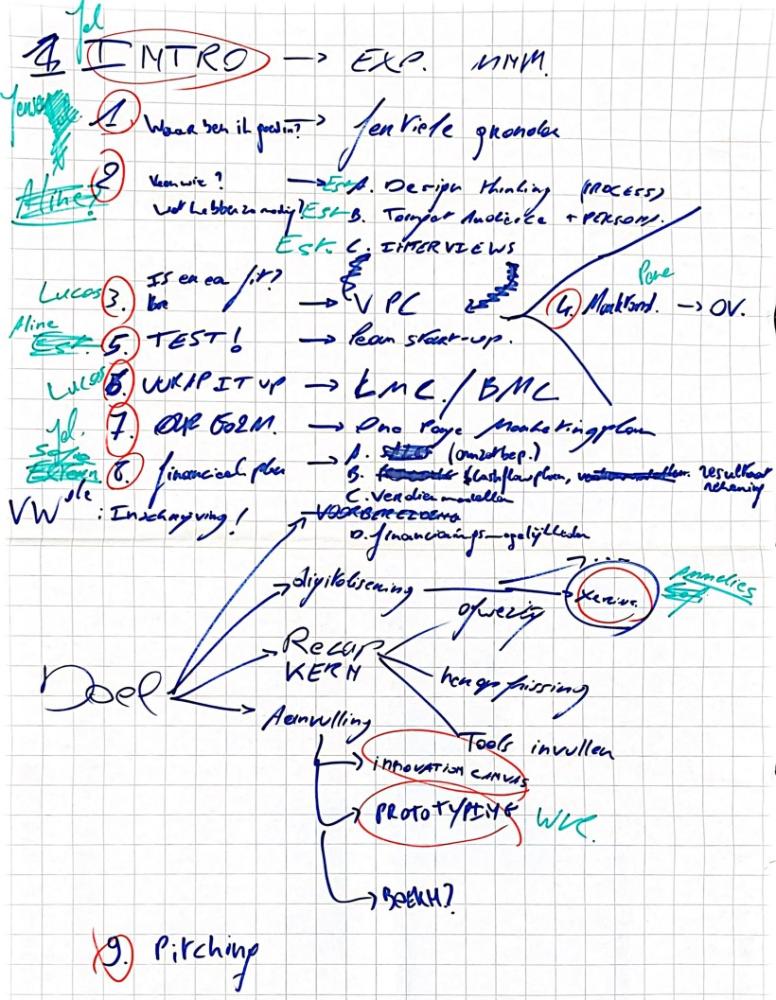 Jel
INTRO → EXP. MNM.
Jeweri
1 Waar ben ik goed in? → Jentiele
2 Voor wie? → Est A. Design thinking (PROCESS)
Aline?
Wat hebben ze nodig? Est B. Target Audience + PERSONA.
Est. C. INTERVIEWS
Lucas 3. Is er een fit? → VPC
4. Marktond. → OV.
Aline
Est. 5. TEST! → lean start-up.
Lucas 6. WRAP IT UP → LMC / BMC
Jel. 7. GO2M. → One Page Marketingplan
Extern 8. financieel plan → A. (omzetbep.)
B. cashflowplan, resultaat
rekening
C. Verdienmodellen
VW : Inschrijving!
VOORBEREIDEND
D. financieringsmogelijkheden
→ ....
→ digitalisering
Annelies
Recap
KERN
Doel
→ Aanvulling
Tools invullen
→ INNOVATION CANVAS
→ PROTOTYPING WVC.
→ BOEKH?
9. Pitching